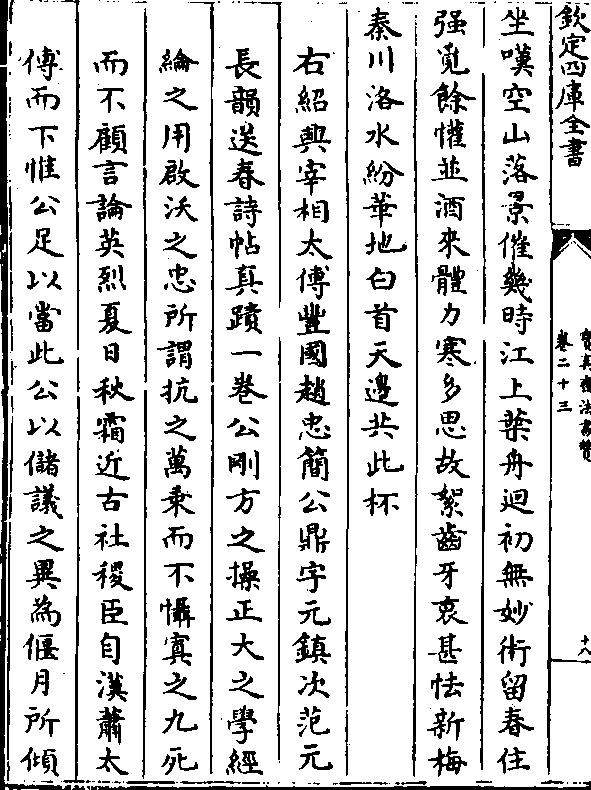 欽定四庫全書
寶真齋法書贊
卷二十三
十八
坐嘆空山落景催幾時江上葉舟迴初無妙術留春住
强覓餘懽並酒來體力寒多思故絮齒牙衰甚怯新梅
秦川洛水紛華地白首天邊共此杯
右紹興宰相太傅豐國趙忠簡公鼎字元鎮次范元
長韻送春詩帖真蹟一卷公剛方之操正大之學經
綸之用啟沃之忠所謂抗之萬乘而不懾寘之九死
而不顧言論英烈夏日秋霜近古社稷臣自漢蕭太
傅而下惟公足以當此公以儲議之異為偃月所傾